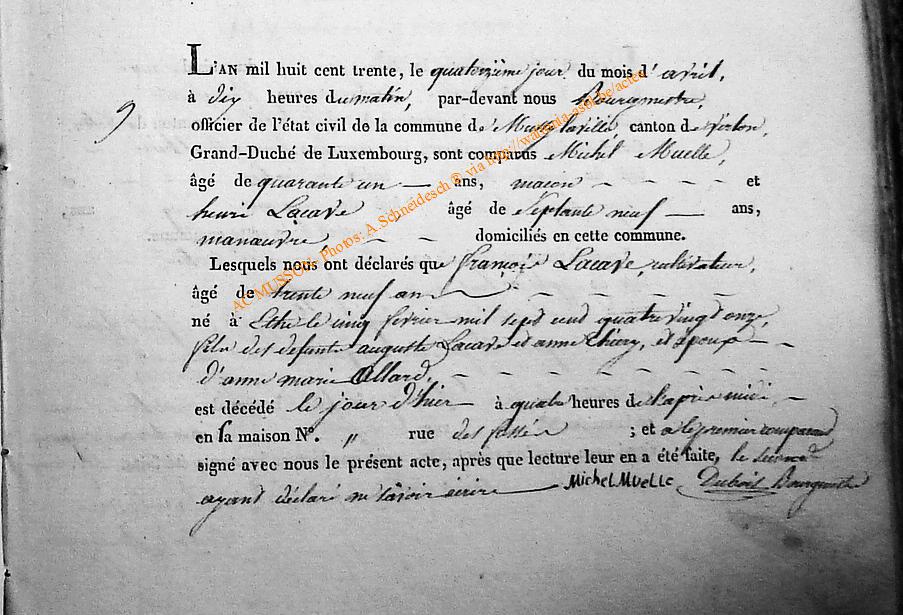 L'AN mil huit cent trente, le quatorzième jour du mois d'avril,
à dix heures du matin, par-devant nous Bourgmestre,
9
officier de l'état civil de la commune de Mussy la ville, canton de virton,
Grand-Duché de Luxembourg, sont comparus Michel Muelle,
âgé de quarante un ans, maçon et
henri Lacave âgé de septante neuf ans,
manœuvre, domiciliés en cette commune.
Lesquels nous ont déclarés que françois Lacave, cultivateur,
âgé de trente neuf an
né à Ethe le cinq février mil sept cent quatre vingt onze,
fils des defunts auguste Lacave et anne thiry, et epoux
d'anne marie Allard,
est décédé le jour d'hier à quatre heures de l'après midi,
en sa maison No. " rue des fossés ; et a le premier comparant
signé avec nous le présent acte, après que lecture leur en a été faite, le second
ayant déclaré ne savoir écrire Michel Muelle Dubois Bourgmestre
AC MUSSON - Photos: A.Schneidesch ® via http://wallonia-asbl.be/actes